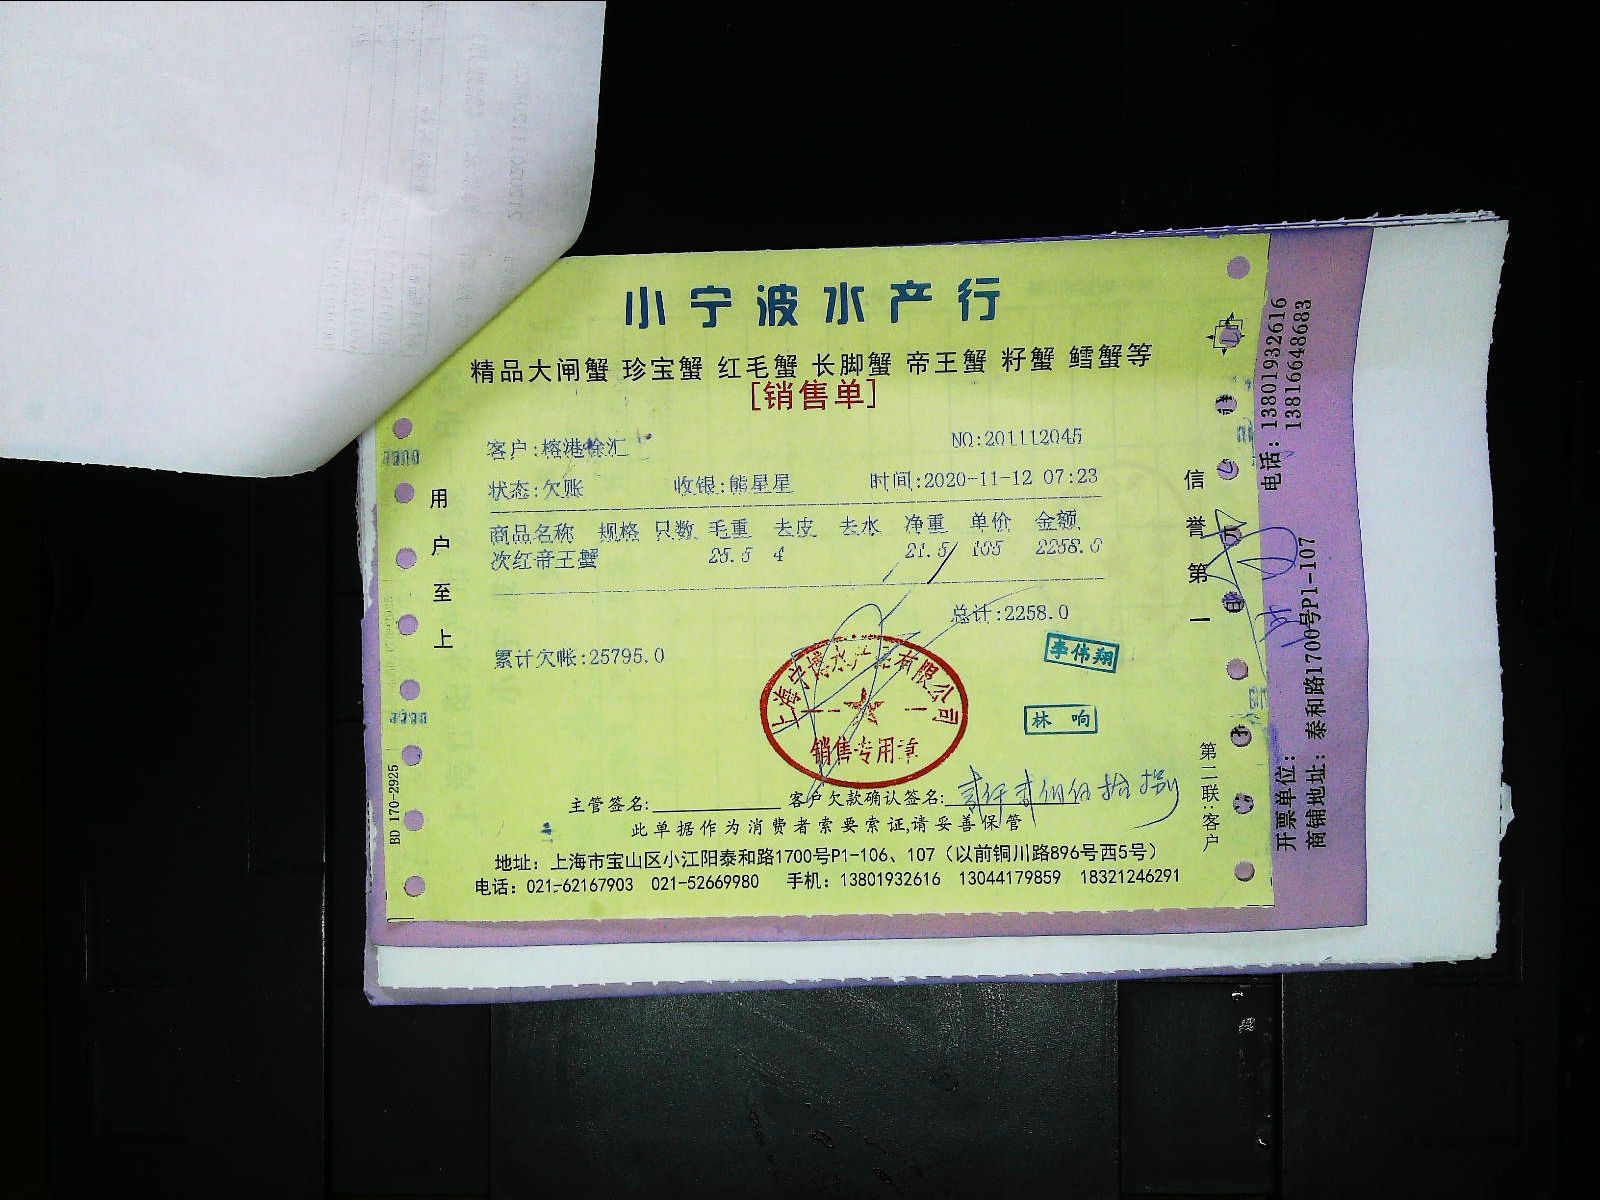 小宁波水产行
精品大闸蟹 珍宝蟹 红毛蟹 长脚蟹 帝王蟹 籽蟹 鳕蟹等
[销售单]
客户:榕港徐汇
NO:201112045
状态:欠账 收银:熊星星 时间:2020-11-12 07:23
商品名称 规格 只数 毛重 去皮 去水 净重 单价 金额
次红帝王蟹 25.5 4 21.5 105 2258.0
总计:2258.0
累计欠帐:25795.0
李伟翔
林 响
上海宁博水产品有限公司
销售专用章
主管签名: 客户欠款确认签名: 贰仟贰佰伍拾捌
此单据作为消费者索要索证,请妥善保管
地址：上海市宝山区小江阳泰和路1700号P1-106、107（以前铜川路896号西5号）
电话：021-62167903 021-52669980 手机：13801932616 13044179859 18321246291
用户至上
信誉第一
第二联:客户
BD 170-2925
电话：13801932616
13816648683
开票单位：
商铺地址：泰和路1700号P1-107